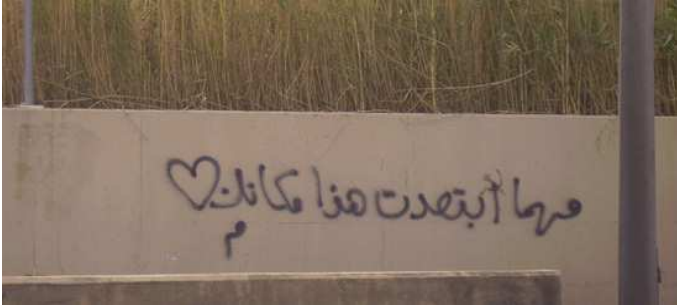 مهما أبتعدت هذا مكانك ♡
م